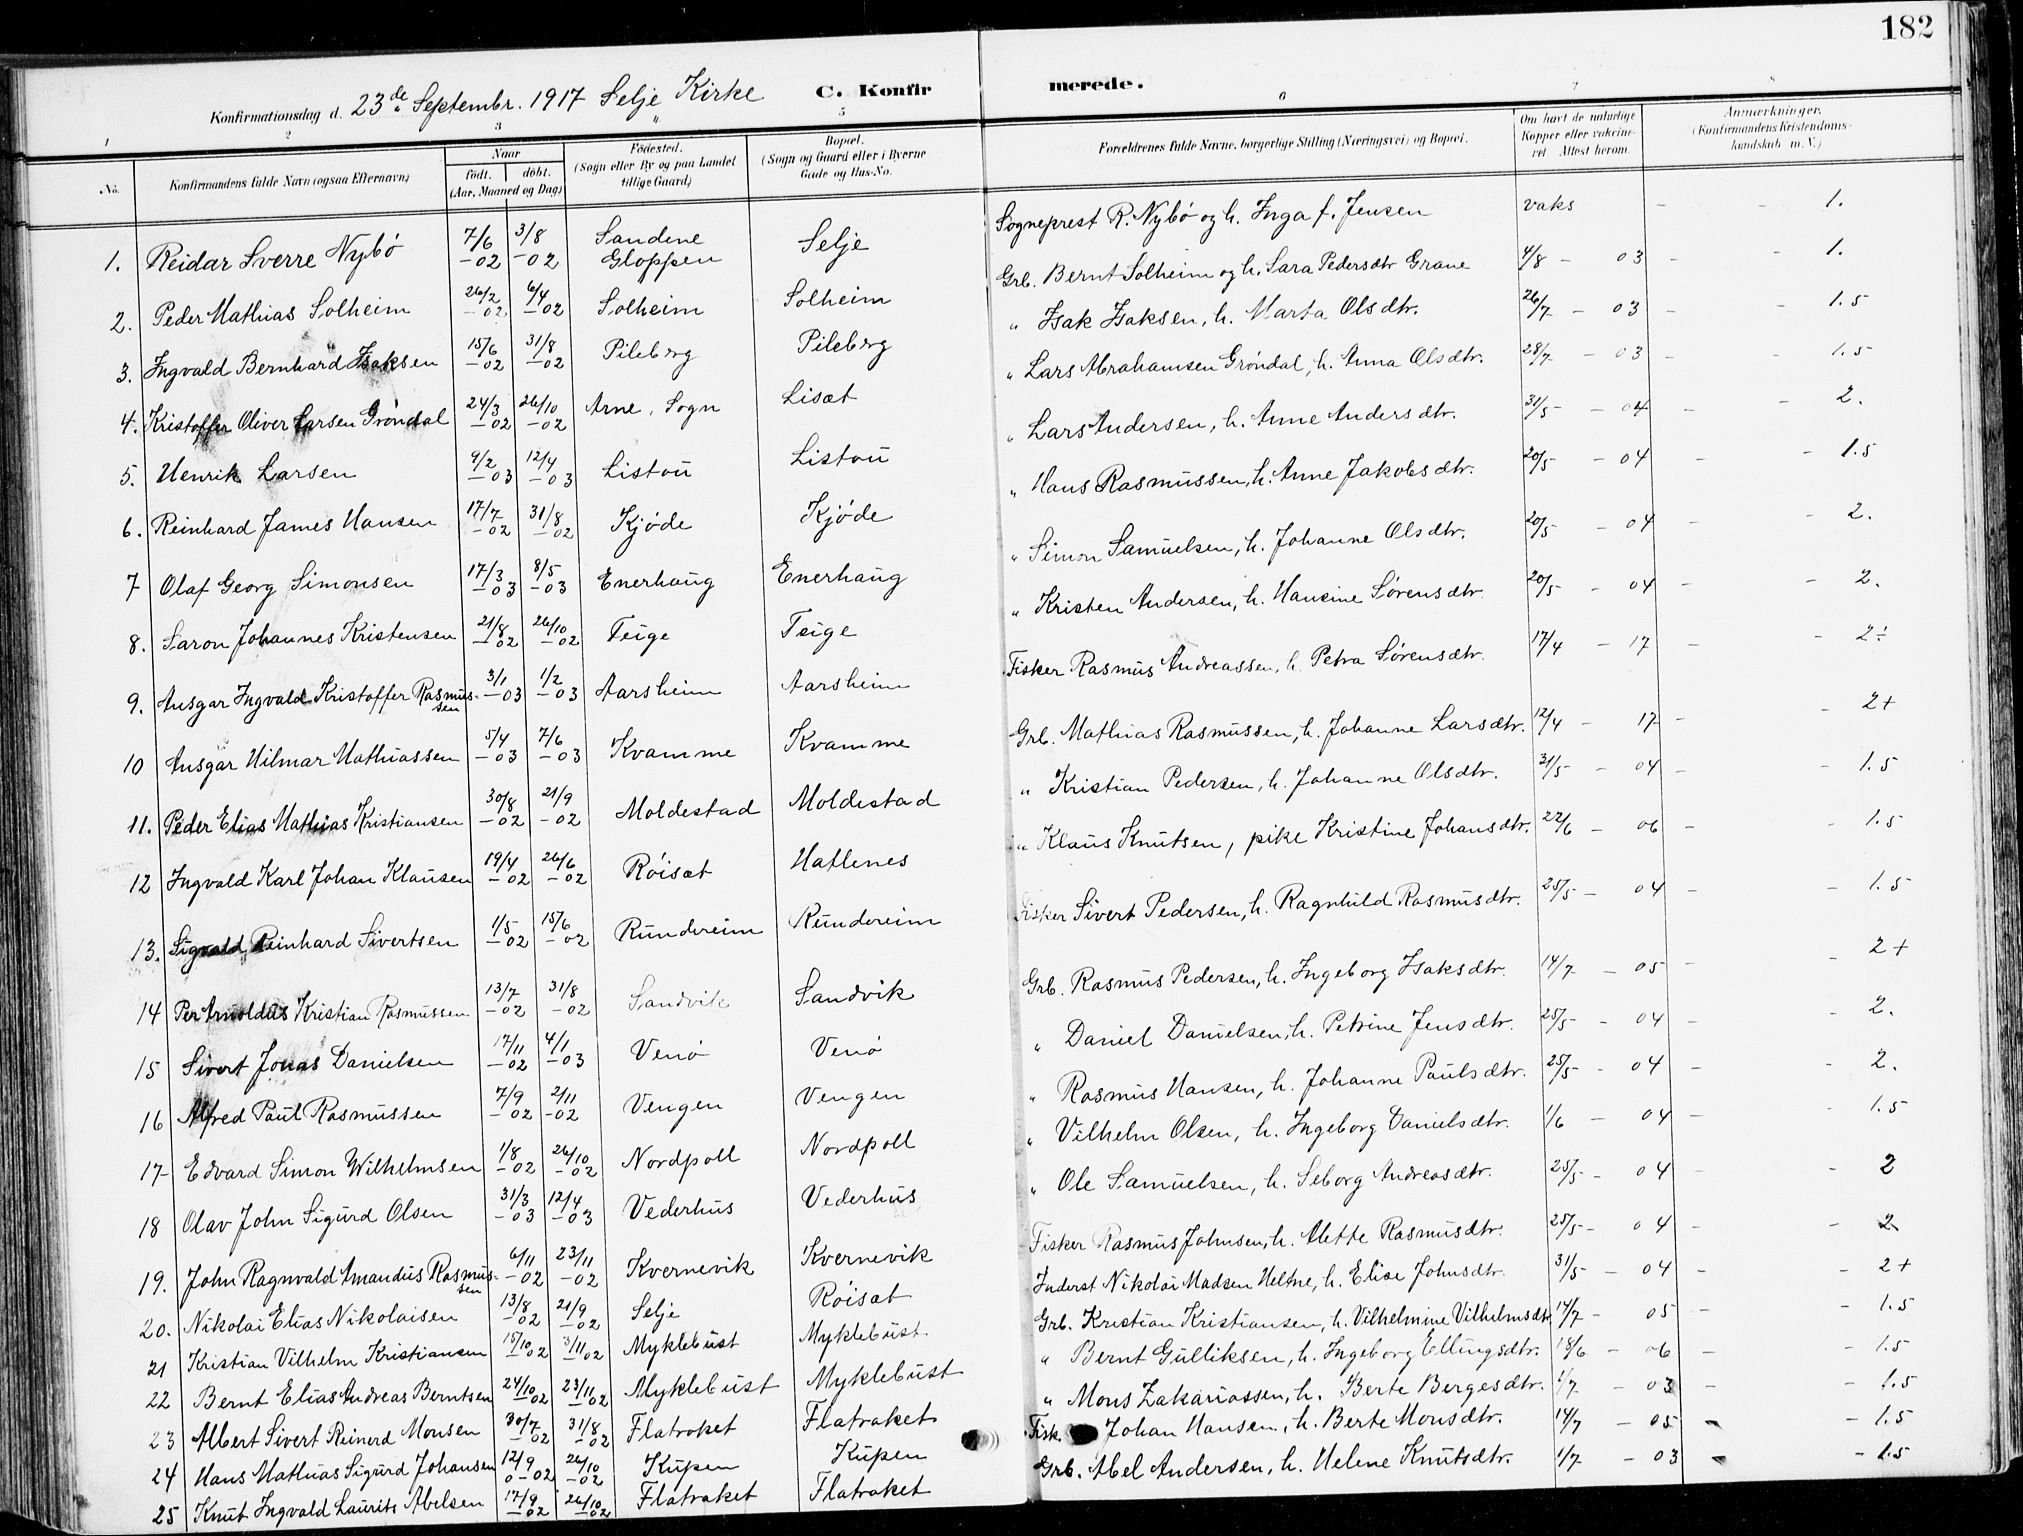 182
Konfirmationsdag d. 23de Septembr. 1917 Selje Kirke C. Konfirmerede.
1 2 3 5 6 7
No. Konfirmandens fulde Navn (ogsaa Efternavn) Naar født. døbt. (Aar, Maaned og Dag) Fødested. (Sogn eller By og paa Landet tillige Gaard) Bopæl. (Sogn og Gaard eller i Byerne Gade og Hus-No. Forældrenes fulde Navne, borgerlige Stilling (Næringsvei) og Bopæl. Om havt de naturlige Kopper eller vakcineret. Attest herom. Anmærkninger. (Konfirmandens Kristendomskundskab m. V.)
1. Reidar Sverre Nybø 7/6 -02 3/8 -02 Sandene Gloppen Selje Sogneprest R. Nybø og h. Inga f. Jensen vaks - - 1.
2. Peder Mathias Solheim 26/2 -02 6/4 -02 Solheim Solheim Grb. Bernt Solheim og h. Sara Pedersdtr Grane 4/8 - 03 - - 1.
3. Ingvald Bernhard Isaksen 15/6 -02 31/8 -02 Pileberg Pileberg " Isak Isaksen, h. Marta Olsdtr. 26/7 - 03 - - 1.5
4. Kristoffer Oliver Larsen Grøndal 24/3 -02 26/10 -02 Arne, Sogn Lisæt " Lars Abrahamsen Grøndal, h. Anna Olsdtr. 28/7 - 03 - - 1.5
5. Henrik Larsen 9/2 -03 12/4 -03 Listou Listou " Lars Andersen, h. Anne Andersdtr. 31/5 - 04 - - 2.
6. Reinhard James Hansen 17/7 -02 31/8 -02 Kjøde Kjøde " Hans Rasmussen, h. Anne Jakobsdtr. 20/5 - 04 - - 1.5
7 Olaf Georg Simonsen 17/3 -03 8/5 -03 Enerhaug Enerhaug " Simon Samuelsen, h. Johanne Olsdtr. 20/5 - 04 - - 2.
8. Saron Johannes Kristensen 21/8 -02 26/10 -02 Teige Teige " Kristen Andersen, h. Hansine Sørensdtr. 20/5 - 04 - - 2.
9. Ansgar Ingvald Kristoffer Rasmussen 3/1 -03 1/2 -03 Aarsheim Aarsheim Fisker Rasmus Andreassen, h. Petra Sørensdtr. 17/4 - 17 - - 2÷
10 Ansgar Hilmar Mathiassen 5/4 -03 7/6 -03 Kvamme Kvamme Grb. Mathias Rasmussen, h. Johanne Larsdtr. 12/4 - 17 - - 2+
11. Peder Elias Mathias Kristiansen 30/8 -02 21/9 -02 Moldestad Moldestad " Kristian Pedersen, h. Johanne Olsdtr. 31/5 - 04 - - 1.5
12 Ingvald Karl Johan Klausen 19/4 -02 26/6 -02 Røisæt Hatlenes " Klaus Knutsen, pike Kristine Johansdtr. 22/6 - 06 - - 1.5
13. Sigvald Reinhard Sivertsen 1/5 -02 15/6 -02 Rundereim Rundereim Fisker Sivert Pedersen, h. Ragnhild Rasmusdtr. 25/5 - 04 - - 1.5
14 Per Arnoldus Kristian Rasmussen 13/7 -02 31/8 -02 Sandvik Sandvik Grb. Rasmus Pedersen, h. Ingeborg Isaksdtr. 14/7 - 05 - - 2+
15 Sivert Jonas Danielsen 17/11 -02 4/1 -03 Venø Venø " Daniel Danielsen, h. Petrine Jensdtr. 25/5 - 04 - - 2.
16 Alfred Paul Rasmussen 7/9 -02 2/11 -02 Vengen Vengen " Rasmus Hansen, h. Johanne Paulsdtr. 25/5 - 04 - - 2.
17 Edvard Simon Wilhelmsen 1/8 -02 26/10 -02 Nordpoll Nordpoll " Vilhelm Olsen, h. Ingeborg Danielsdtr. 1/6 - 04 - - 1.5
18 Olav John Sigurd Olsen 31/3 -03 12/4 -03 Vederhus Vederhus " Ole Samuelsen, h. Seborg Andreasdtr. 25/5 - 04 - - 2
19. John Ragnvald Amandus Rasmussen 6/11 -02 23/11 -02 Kvernevik Kvernevik Fisker Rasmus Johnsen, h. Mette Rasmusdtr. 25/5 - 04 - - 2
20. Nikolai Elias Nikolaisen 13/8 -02 21/9 -02 Selje Røisæt Inderst Nikolai Madsen Heltne, h. Elise Johnsdtr. 31/5 - 04 - - 2+
21 Kristian Vilhelm Kristiansen 15/10 -02 3/11 02 Myklebust Myklebust Grb. Kristian Kristiansen, h. Vilhelmine Vilhelmsdtr. 14/7 - 05 - - 1.5
22 Bernt Elias Andreas Berntsen 24/10 -02 23/11 -02 Myklebust Myklebust " Bernt Gulliksen, h. Ingeborg Ellingsdtr. 18/6 - 06 - - 1.5
23 Albert Sivert Reinerd Monsen 30/7 -02 31/8 -02 Flatraket Flatraket " Mons Zakariassen, h. Berte Bergesdtr. 1/7 - 03 - - 1.5
24 Hans Mathias Sigurd Johansen 12/9 -02 26/10 -02 Kupen Kupen Fisk. Johan Hansen, h. Berte Monsdtr. 14/7 - 05 - - 1.5
25 Knut Ingvald Laurits Abelsen 17/9 -02 26/10 -02 Flatraket Flatraket Grb. Abel Andersen, h. Helene Knutsdtr. 1/7 - 03 - - 1.5